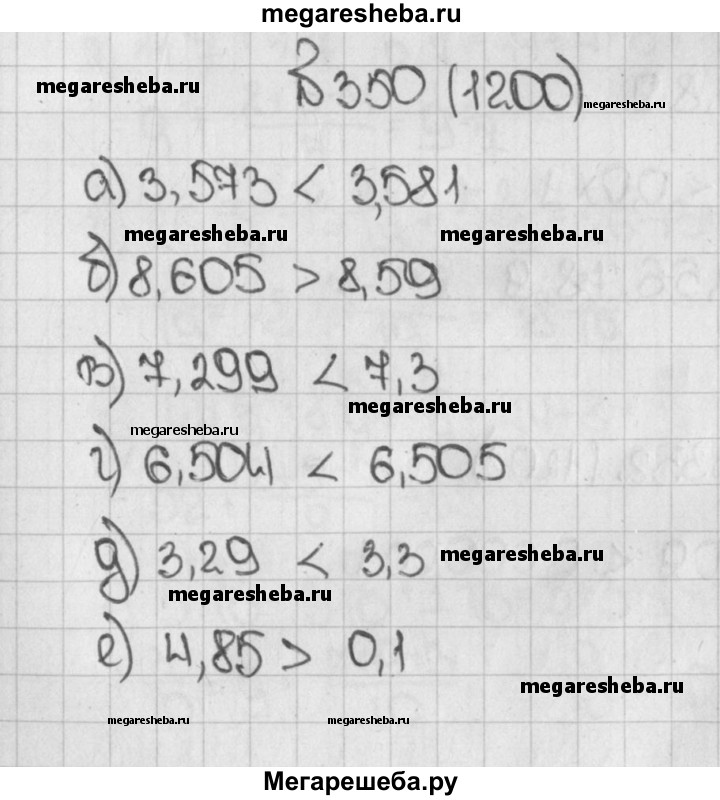 megaresheba.ru
megaresheba.ru
В 350 (1200) megaresheba.ru
а) 3,573 < 3,581
megaresheba.ru megaresheba.ru
б) 8,605 > 8,59
в) 7,299 < 7,3
megaresheba.ru
megaresheba.ru
г) 6,504 < 6,505
д) 3,29 < 3,3 megaresheba.ru
megaresheba.ru
е) 4,85 > 0,1
megaresheba.ru
megaresheba.ru megaresheba.ru
Мегарешеба.ру